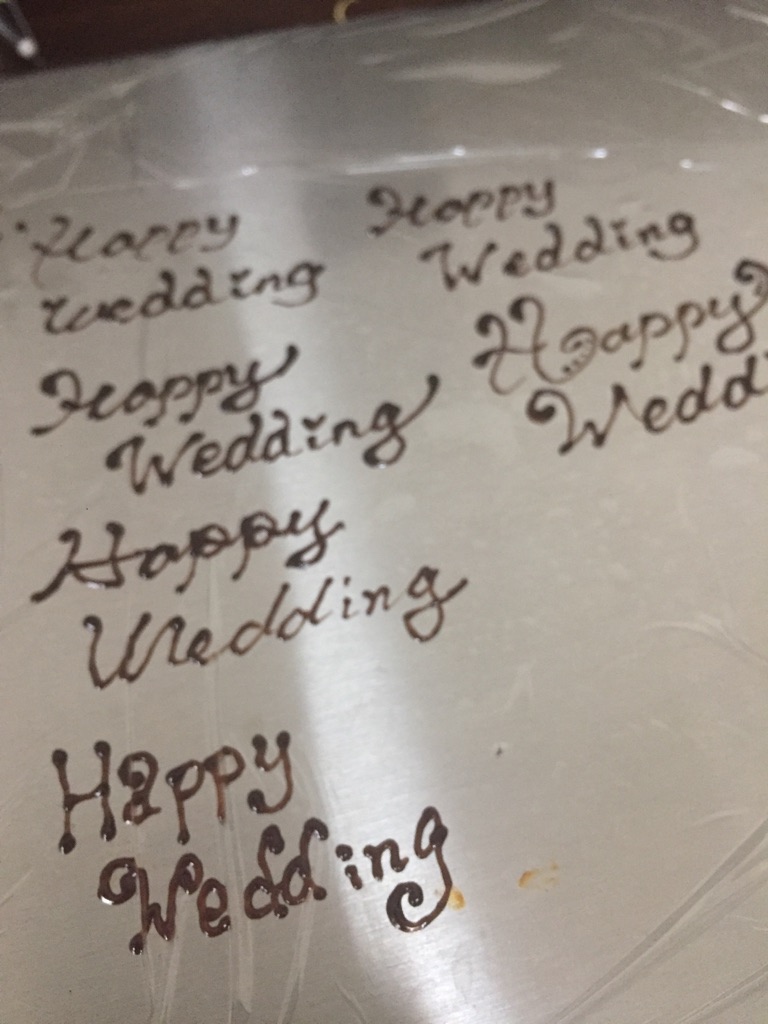 Happy
Wedding
Happy
Wedding
Happy
Wedding
Happy
Wedd
Happy
Wedding
Happy
Wedding